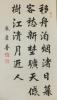 移舟泊烟渚日暮
客愁新野旷天低
树江清月近人